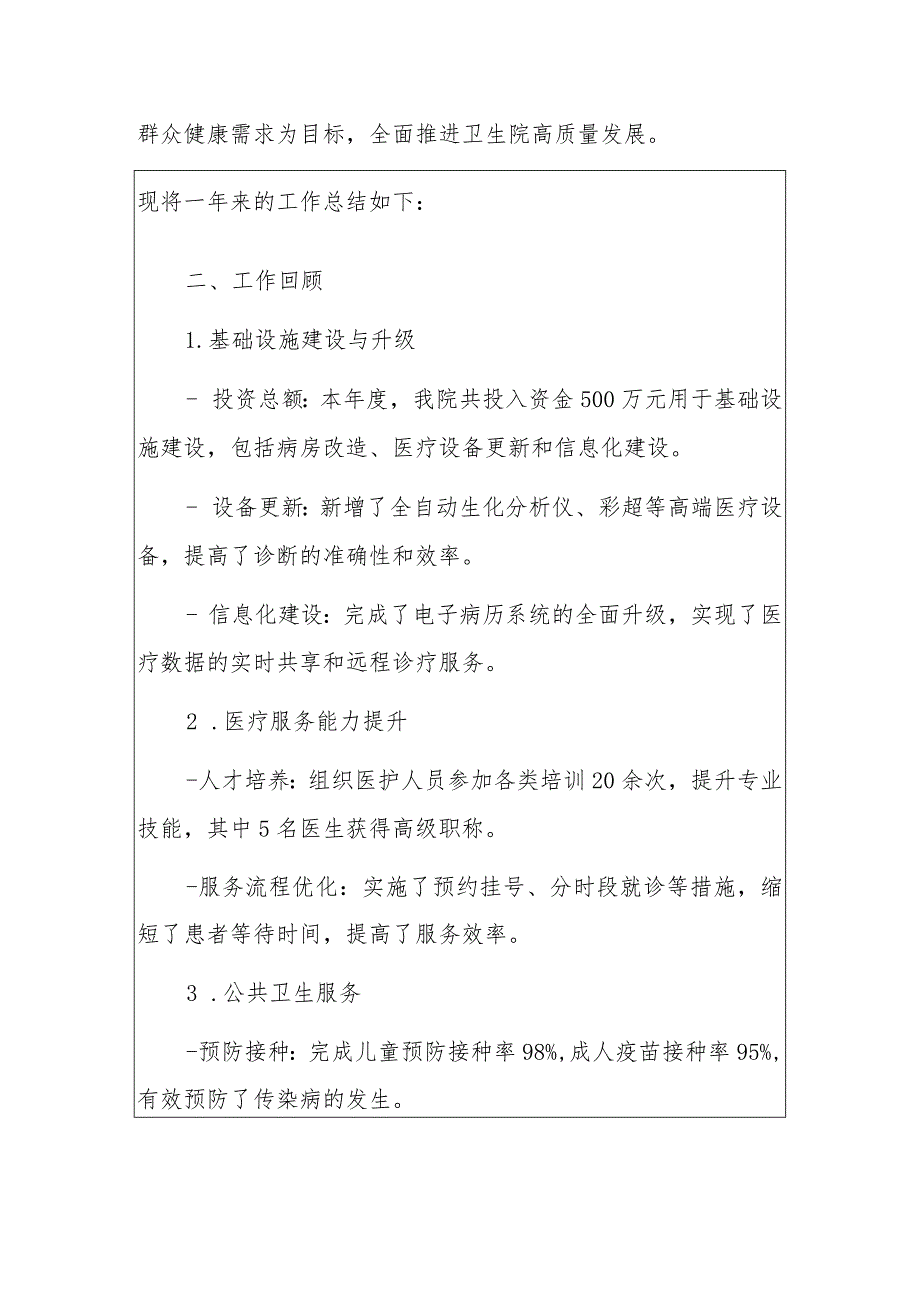 群众健康需求为目标，全面推进卫生院高质量发展。
现将一年来的工作总结如下：
二、工作回顾
1.基础设施建设与升级
- 投资总额：本年度，我院共投入资金 500 万元用于基础设
施建设，包括病房改造、医疗设备更新和信息化建设。
- 设备更新：新增了全自动生化分析仪、彩超等高端医疗设
备，提高了诊断的准确性和效率。
- 信息化建设：完成了电子病历系统的全面升级，实现了医
疗数据的实时共享和远程诊疗服务。
2 .医疗服务能力提升
-人才培养：组织医护人员参加各类培训 20 余次，提升专业
技能，其中 5 名医生获得高级职称。
-服务流程优化：实施了预约挂号、分时段就诊等措施，缩
短了患者等待时间，提高了服务效率。
3 .公共卫生服务
-预防接种：完成儿童预防接种率 98%,成人疫苗接种率 95%,
有效预防了传染病的发生。